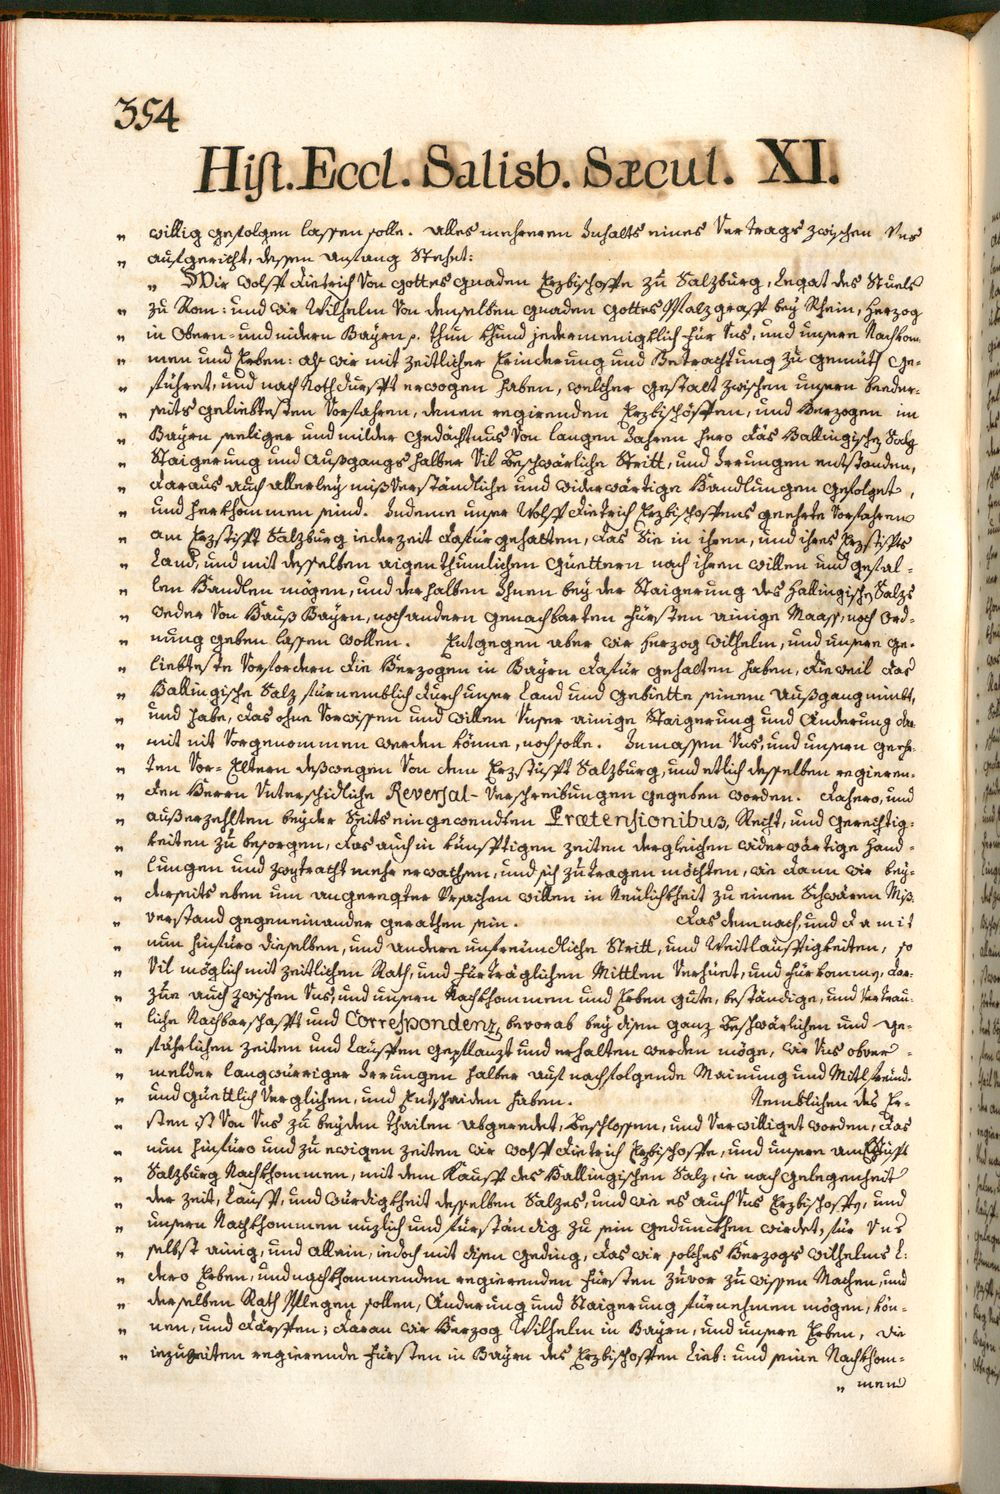 354
Hist. Eccl. Salisb. Sæcul. XI.
„ willig gefolgen lassen solle. Alles mehreren Inhalts eines Vertrags zwischen Uns
„ aufgericht, dessen Anfang Stehet:
„ Wir Wolff Dietrich Von Gottes Gnaden Erzbischoffe zu Salzburg, Legat des Stuels
„ zu Rom: und wir Wilhelm Von denselben Gnaden Gottes Pfalzgraff bey Rhein, Herzog
„ in Obern- und nidern Bayrn p. Thun khund jedermenigklich für Uns, und unsere Nachkom-
„ men und Erben: als wir mit zeitlicher Erinderung und Betrachtung zu gemüth ge-
„ führet, und nach Nothdurfft erwogen haben, welcher gestalt zwischen unsern beeder-
„ seits geliebtesten Vorfahren, denen regirenden Erzbischöffen, und Herzogen in
„ Bayrn seeliger und milder gedächtnus Von langen Jahren hero das Hallingische Salz
„ Staigerung und Außgangs halber Vil Beschwärliche Stritt, und Irrungen entstanden,
„ daraus auch allerley mißverständliche und widerwärtige Handlungen gefolget,
„ und herkhommen seind. Indeme unser Wolff Dietrich Erzbischoffens geehrte Vorfahren
„ am Erzstifft Salzburg iederzeit dafür gehalten, das Sie in ihren, und ihres Erzstiffts
„ Land, und mit desselben aigenthumlichen Güettern nach ihren willen und gefal-
„ len Handlen mögen, und derhalben Ihnen bey der Staigerung des Hallingischen Salzs
„ weder Von Hauß Bayrn, noch andern genachbarten Fürsten ainige Maass, noch Ord-
„ nung geben lassen wollen. Entgegen aber wir Herzog Wilhelm, und unsere ge-
„ liebteste Vorfordern die Herzogen in Bayrn dafür gehalten haben, dieweil das
„ Hallingische Salz fürnemblich durch unser Land und Gebiette seinem Außgang nimbt,
„ und habe, das ohne Vorwissen und willen Unser ainige Staigerung und Änderung da-
„ mit nit Vorgenommen werden könne, noch solle. Inmassen Uns, und unsern geehr-
„ ten Vor-Eltern deßwegen Von dem Erzstüfft Salzburg, und etlich desselben regieren-
„ den Herrn Unterschidliche Reversal-Verschreibungen gegeben worden. Dahero, und
„ außerzehlten beyder Seits eingewendten Prætensionibus, Recht, und Gerechtig-
„ keiten zu besorgen, das auch in künfftigen zeiten dergleichen widerwärtige Hand-
„ lungen und zwytracht mehr erwachsen, und sich zutragen möchten, wie dann wir bey-
„ derseits eben um angeregter Ursachen willen in Neulichkheit zu einen Schwären Miß-
„ verstand gegeneinander gerathen sein. Das demnach, und damit
„ nun hinfüro dieselben, und andere unfreundliche Stritt, und Weitläufftigkeiten, so
„ Vil möglich mit zeitlichen Rath, und fürträglichen Mittlen Verhüet, und fürkomme, dar-
„ zue auch zwischen Uns, und unsern Nachkhommen und Erben gute, beständige, und Vertrau-
„ liche Nachbarschafft und Correspondenz, bevorab bey disen ganz Beschwärlichen und ge-
„ fährlichen zeiten und Läufften gepflanzt und erhalten werden möge, wir Uns obver-
„ melder langwürriger Irrungen halber auf nachfolgende Mainung und Mitl freund-
„ und güettlich Verglichen, und Entschaiden haben. Nemblichen des Er-
„ sten ist Von Uns zu beyden Thailen abgeredet, beschlossen, und Verwilliget worden, das
„ nun hinfüro und zu ewigen zeiten wir Wolff Dietrich Erzbischoffe, und unsere am Stifft
„ Salzburg Nachkhommen, mit dem Kauff des Hallingischen Salz, ie nach gelegenheit
„ der zeit, Läuff, und würdigkheit desselben Salzes, und wie es auch Uns Erzbischoffe, und
„ unsern Nachkhommen nuzlich und fürständig zu sein gedunckhen wirdet, für Uns
„ selbst ainig, und allein, iedoch mit disen geding, das wir solches Herzogs Wilhelms L:
„ dero Erben, und nachkhommenden regierenden Fürsten zuvor zu wissen Machen, und
„ derselben Rath Pflegen sollen, Änderung und Staigerung fürnehmen mögen, kön-
„ nen, und därffen; daran wir Herzog Wilhelm in Bayrn, und unsere Erben, die
„ iezuzeiten regierende Fürsten in Bayrn des Erzbischoffen Lieb: und seine Nachkhom-
„ men